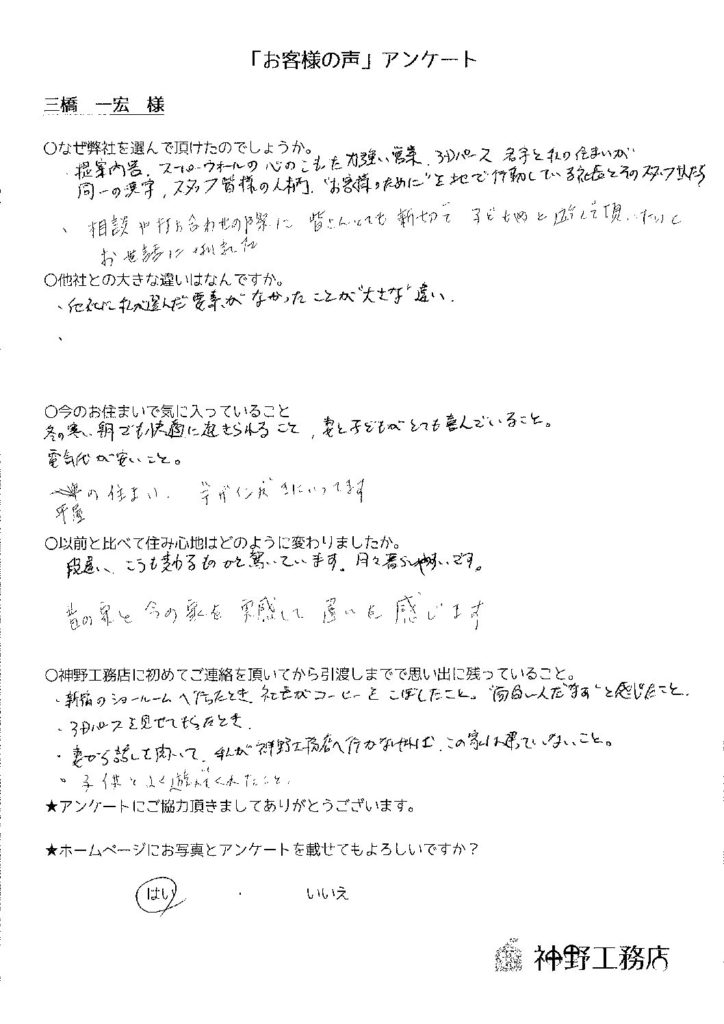 「お客様の声」アンケート
三橋 一宏 様
○なぜ弊社を選んで頂けたのでしょうか。
・提案内容、スーパーウォールの心のこもった力強い営業、3Dパース 名字と私の住まいが
同一の漢字、スタッフ皆様の人柄、"お客様のために"を地で行動している社長とそのスタッフ
、相談や打ち合わせの際に 皆さんとても親切で 子ども達と遊んで頂いたりと
お世話になりました
○他社との大きな違いはなんですか。
・他社に私が選んだ要素がなかったことが"大きな"違い.
、
○今のお住まいで気に入っていること
冬の寒い朝でも快適に起きられること、妻と子どもがとても喜んでいること。
電気代が安いこと。
平屋の住まい、デザインがきにいってます
○以前と比べて住み心地はどのように変わりましたか。
段違い、こうも変わるものかと驚いています。月々暮らしやすいです。
昔の家と今の家を実感して違いを感じます
○神野工務店に初めてご連絡を頂いてから引渡しまでで思い出に残っていること。
・新宿のショールームへ行ったとき、社長がコーヒーをこぼしたこと。"面白い人だなぁ"と感じたこと.
・3Dパースを見せてもらったとき.
・妻から話しを聞いて、私が神野工務店へ行かなければ、この家は建っていないこと。
・子供とよく遊んでくれたこと.
★アンケートにご協力頂きましてありがとうございます。
★ホームページにお写真とアンケートを載せてもよろしいですか？
はい ・ いいえ
神野工務店